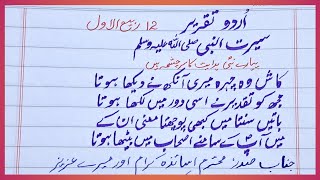 اُردو تقریر 12 ربیع الاول
سیرت النبی صلی اللہ علیہ وسلم
پیارے نبی ہدایت کا سرچشمہ ہیں
کاش وہ چہرہ میری آنکھ نے دیکھا ہوتا
مجھ کو تقدیر نے اسی دور میں لکھا ہوتا
باتیں سنتا میں کبھی پوچھتا معنی ان کے
میں آپ کے سامنے اصحاب میں بیٹھا ہوتا
جناب صدر! محترم اساتذہ کرام اور میرے عزیز